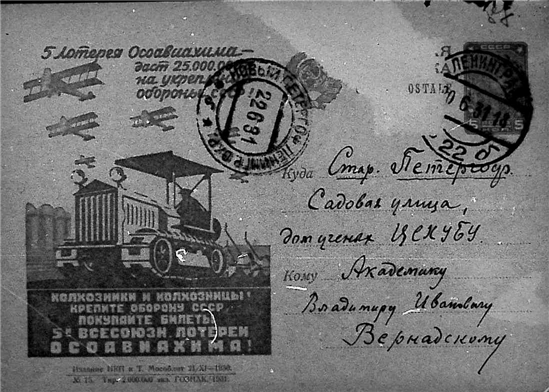 5 Лотерея Осоавиахима—
даст 25.000.00
на укрепл
обороны СССР!
НОВЫЙ ПЕТЕРГОФ
ЛЕНИНГР.
22.6.31
СССР
ЛЕНИНГРАД
6.31.18
22 об
КА
OSTALE
5
Куда Стар. Петергоф.
Садовая улица,
дом ученых ЦЕКУБУ
Кому Академику
Владимиру Ивановичу
Вернадскому
КОЛХОЗНИКИ И КОЛХОЗНИЦЫ!
КРЕПИТЕ ОБОРОНУ СССР,
ПОКУПАЙТЕ БИЛЕТЫ
5й ВСЕСОЮЗН. ЛОТЕРЕИ
ОСОАВИАХИМА!
Издание НКП и Т. Мособлит 21/XI—1930.
№ 15. Тир. 2.000.000 экз. ГОЗНАК. 1931.